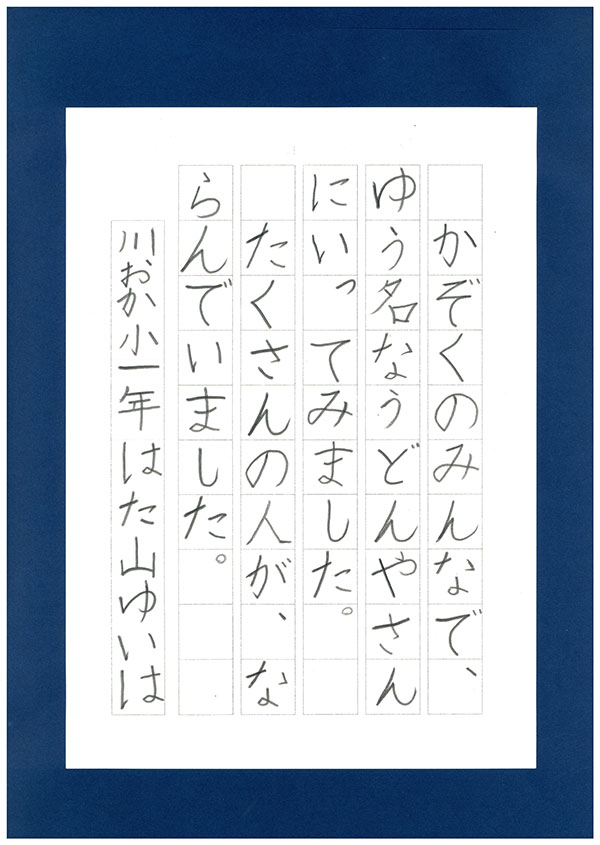 かぞくのみんなで、
ゆう名なうどんやさん
にいってみました。
　たくさんの人が、な
らんでいました。
川おか小一年はた山ゆいは